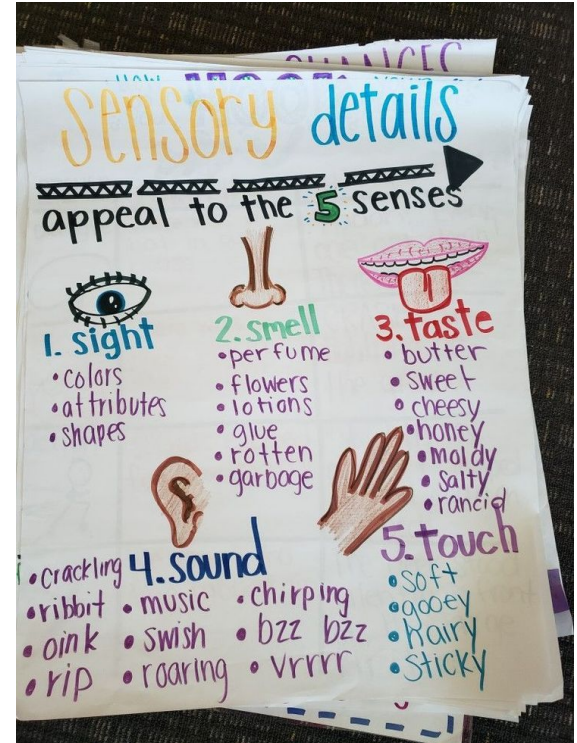 CHANGES
HOW
sensory details
appeal to the 5 senses
1. sight
• colors
• attributes
• shapes
2. smell
• perfume
• flowers
• lotions
• glue
• rotten
• garbage
3. taste
• butter
• sweet
• cheesy
• honey
• moldy
• salty
• rancid
4. sound
• crackling
• ribbit
• oink
• rip
• music
• swish
• roaring
• chirping
• bzz bzz
• vrrrr
5. touch
• soft
• gooey
• hairy
• sticky